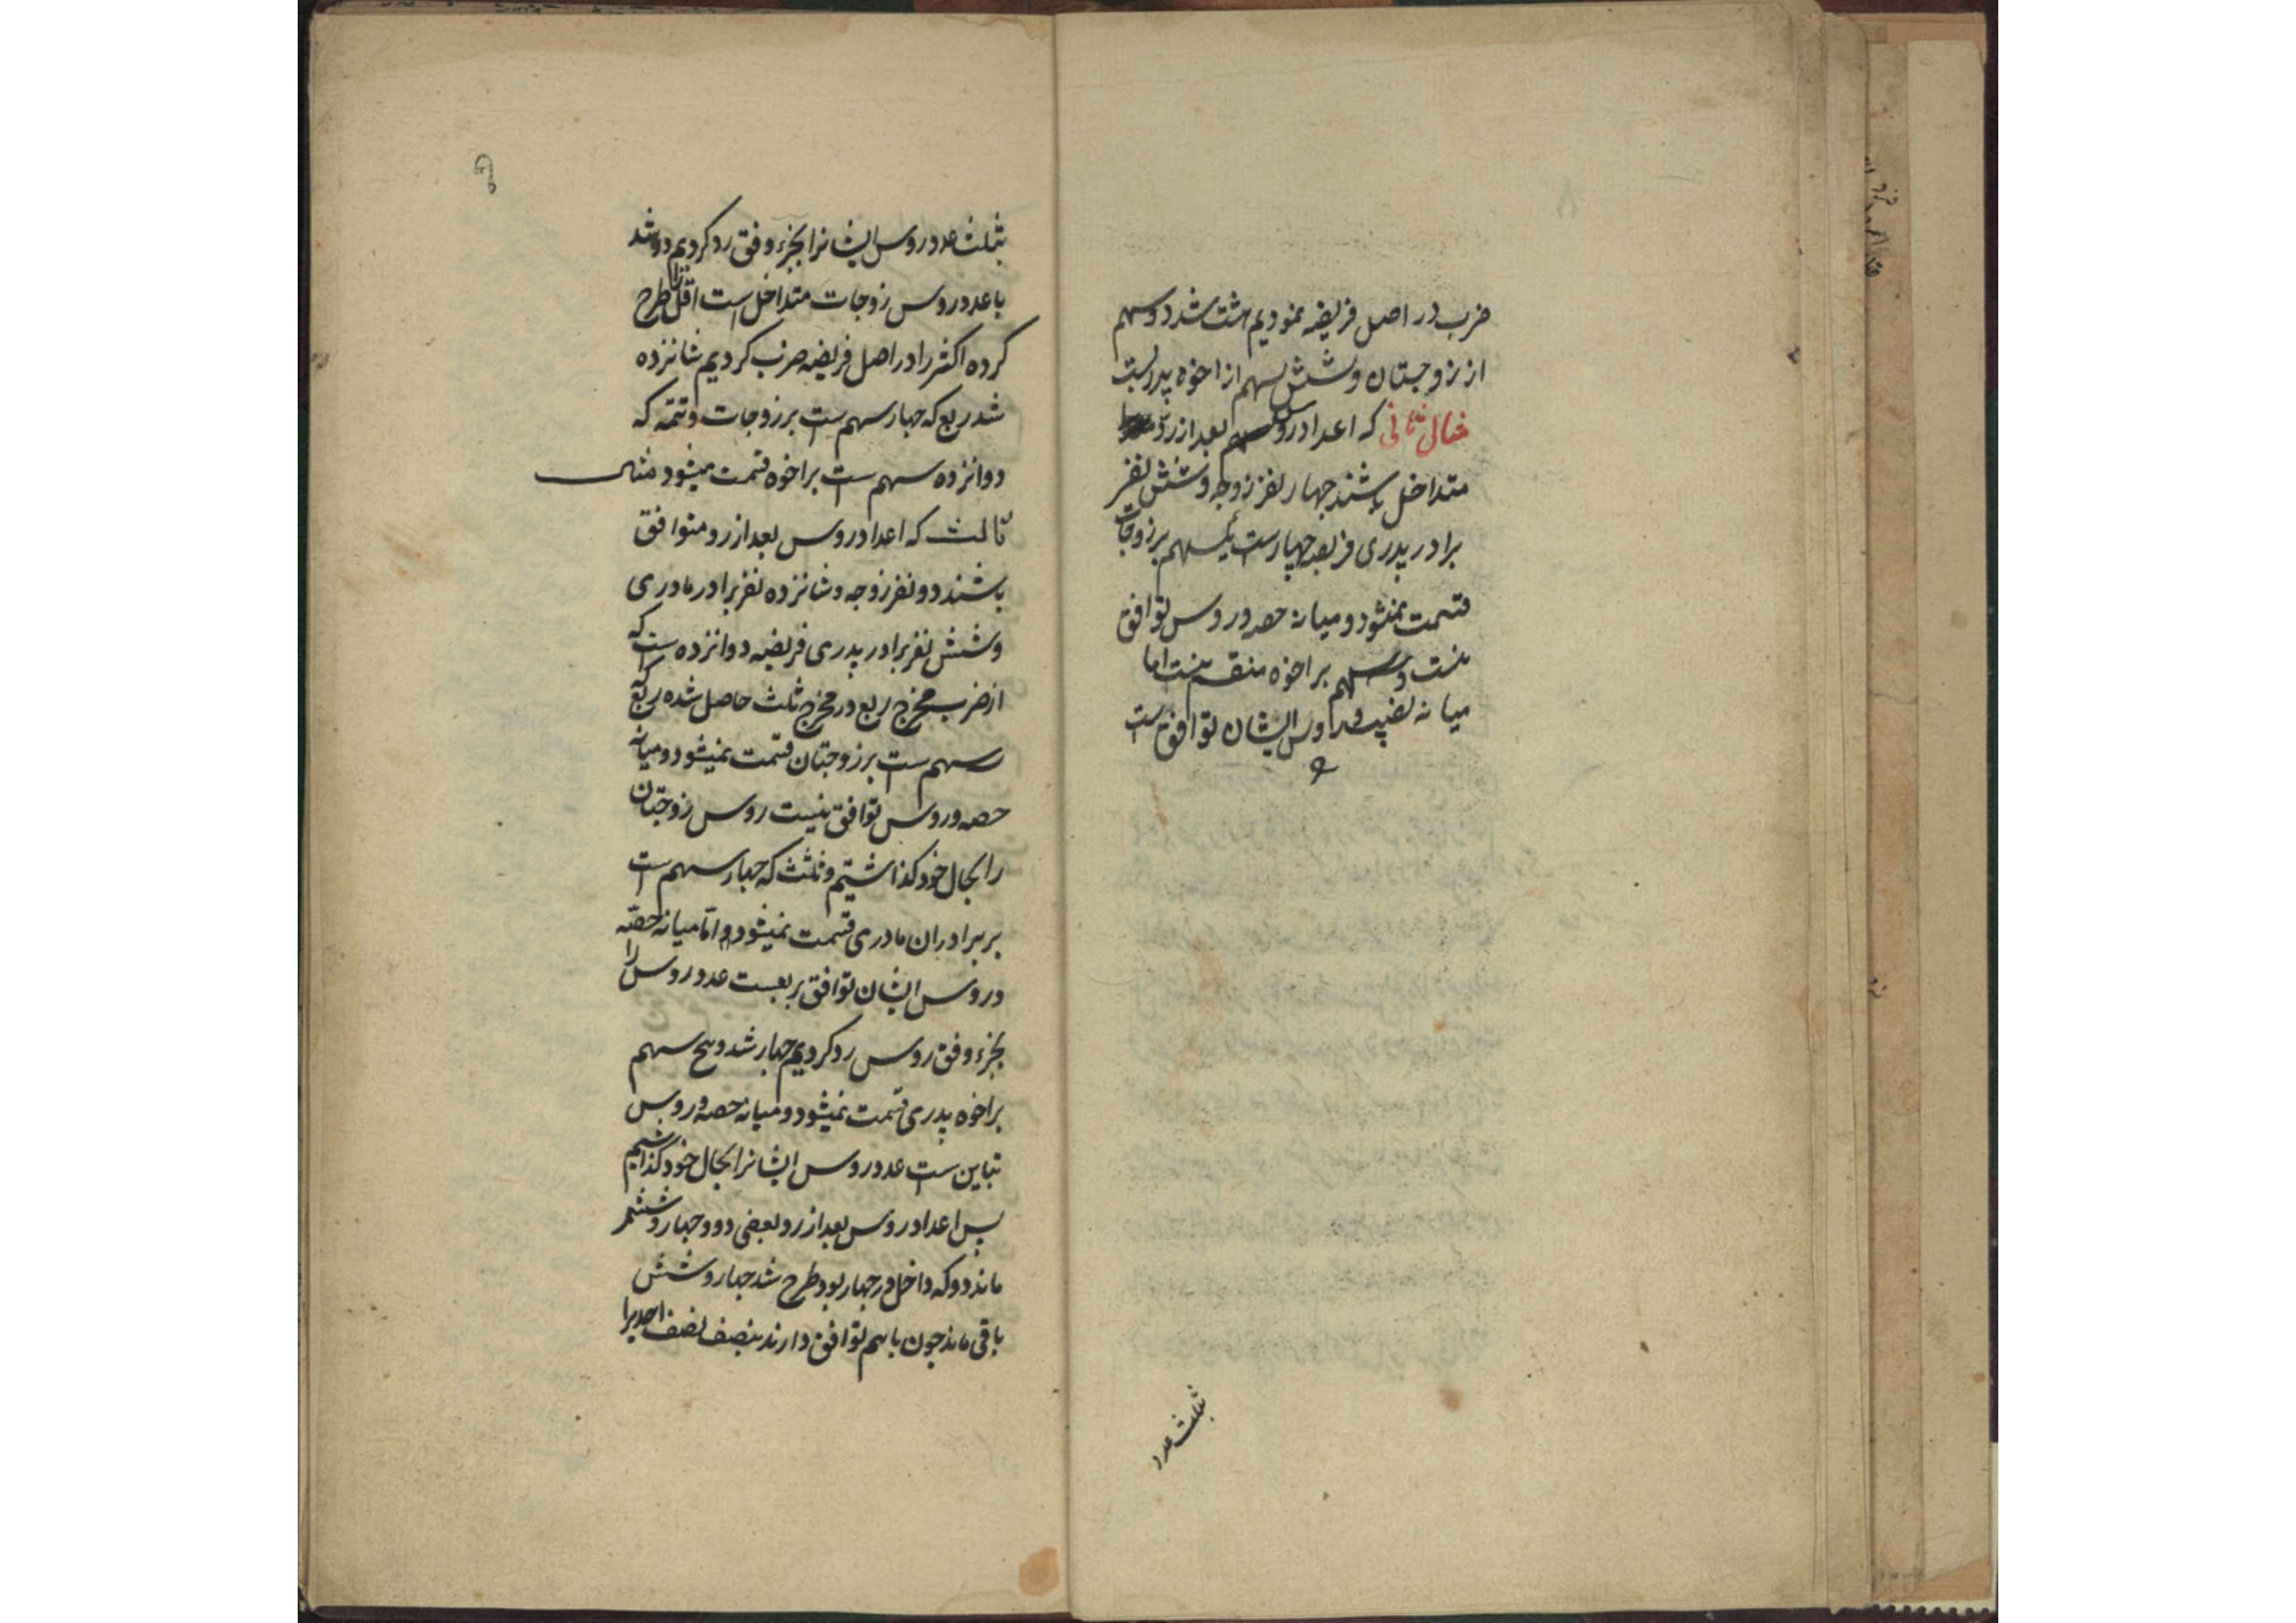 ضرب در اصل فریضه نمودیم هشت شد دو سهم
از زوجتان و شش سهم از اخوه پدریست
مثال ثانی که اعداد روس بعد از رد
متداخل باشند چهار نفر زوجه و شش نفر
برادر پدری فریضه چهارست یکسهم بر زوجات
قسمت نمیشود و میانه حصه و روس توافق
نیست و سه سهم بر اخوه منقسم نیست اما
میانه نصیب و روس ایشان توافق است
بثلث عدد
بثلث عدد روس ایشانرا بجزء وفق رد کردیم دو شد
با عدد روس زوجات متداخل است اقل را طرح
کرده اکثر را در اصل فریضه ضرب کردیم شانزده
شد ربع که چهار سهم است بر زوجات و تتمه که
دوانزده سهم است بر اخوه قسمت میشود مثال
ثالث که اعداد روس بعد از رد متوافق
باشند دو نفر زوجه و شانزده نفر برادر مادری
و شش نفر برادر پدری فریضه دوانزده است که
از ضرب مخرج ربع در مخرج ثلث حاصل شده ربع که
سه سهم است بر زوجتان قسمت نمیشود و میانه
حصه و روس توافق نیست روس زوجتان
را بحال خود گذاشتیم و ثلث که چهار سهم است
بر برادران مادری قسمت نمیشود و اما میانه حصه
و روس ایشان توافق بربعست عدد روس را
بجزء وفق روس رد کردیم چهار شد و پنج سهم
بر اخوه پدری قسمت نمیشود و میانه حصه و روس
تباین است عدد روس ایشانرا بحال خود گذاشتیم
پس اعداد روس بعد از رد بعضی دو و چهار و شش
ماند دو که داخل در چهار بود طرح شد چهار و شش
باقی ماند چون با هم توافق دارند بنصف نصف احدیرا